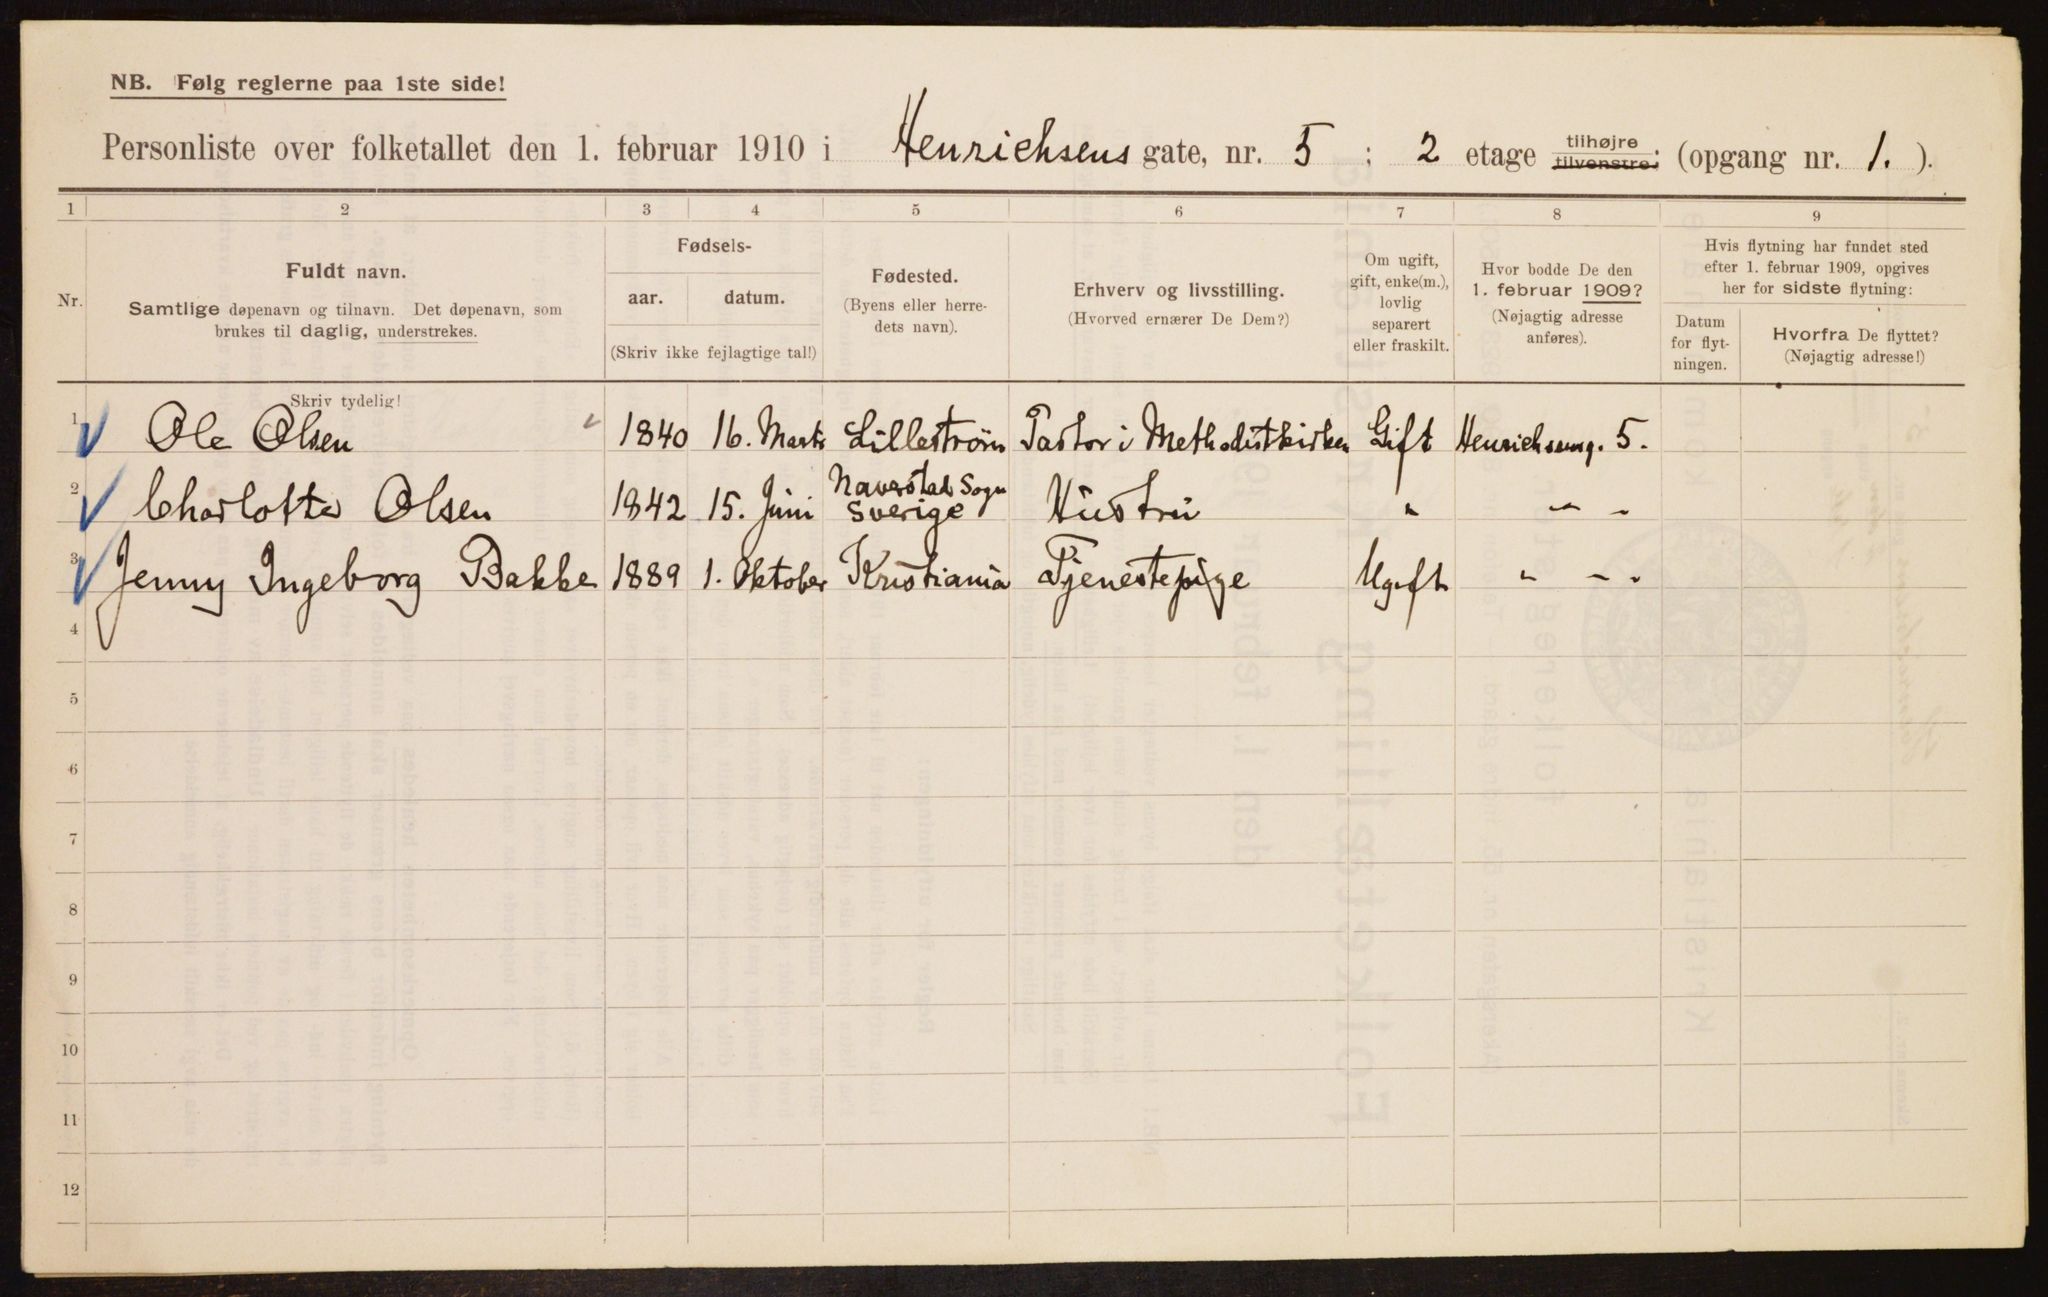 NB. Følg reglerne paa 1ste side!
Personliste over folketallet den 1. februar 1910 i Henrichsens gate, nr. 5 ; 2 etage tilhøjre tilvenstre; (opgang nr. 1. ).
1 2 3 4 5 6 7 8 9
Nr.
Fuldt navn.
Samtlige døpenavn og tilnavn. Det døpenavn, som
brukes til daglig, understrekes.
Fødsels-
aar. datum.
(Skriv ikke fejlagtige tal!)
Fødested.
(Byens eller herre-
dets navn).
Erhverv og livsstilling.
(Hvorved ernærer De Dem?)
Om ugift,
gift, enke(m.),
lovlig
separert
eller fraskilt.
Hvor bodde De den
1. februar 1909?
(Nøjagtig adresse
anføres).
Hvis flytning har fundet sted
efter 1. februar 1909, opgives
her for sidste flytning:
Datum
for flyt-
ningen.
Hvorfra De flyttet?
(Nøjagtig adresse!)
Skriv tydelig!
1 Ole Olsen 1840 16. Marts Lillestrøm Pastor i Methodistkirken Gift Henrichsensg. 5.
2 Charlotte Olsen 1842 15. Juni Naverstads Sogn Sverige Hustru " " "
3 Jenny Ingeborg Bakke 1889 1. Oktober Kristiania Tjenestepige Ugift " " "
4
5
6
7
8
9
10
11
12